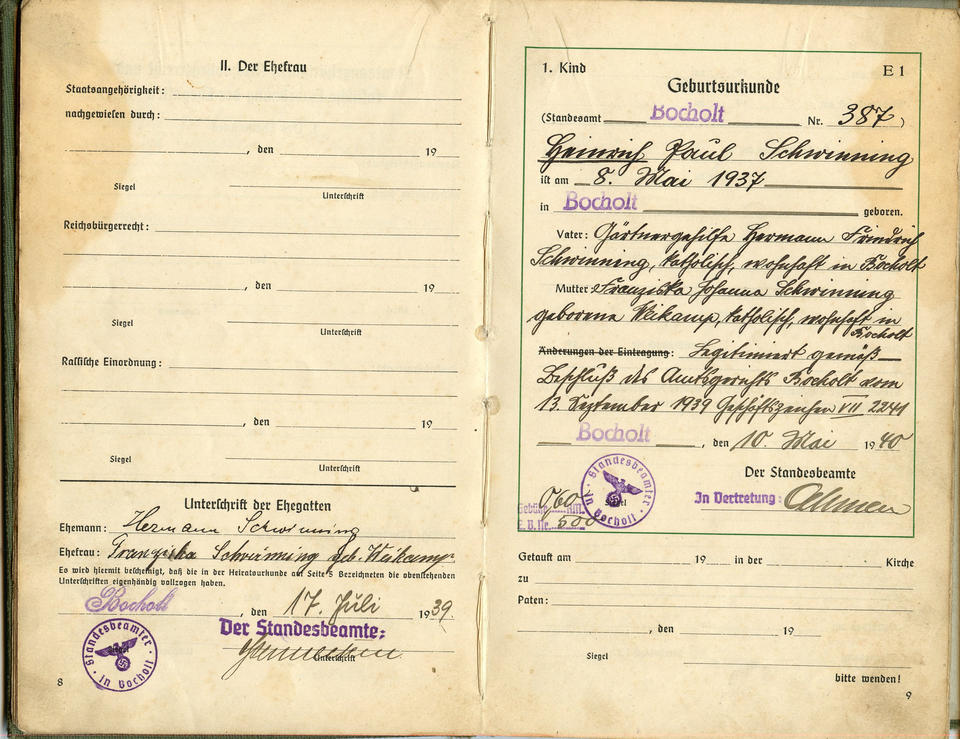 II. Der Ehefrau
Staatsangehörigkeit:
nachgewiesen durch:
, den 19
Siegel
Unterschrift
Reichsbürgerrecht:
, den 19
Siegel
Unterschrift
Rassische Einordnung:
, den 19
Siegel
Unterschrift
Unterschrift der Ehegatten
Ehemann: Hermann Schwinning
Ehefrau: Franziska Schwinning geb. Weikamp.
Es wird hiermit bescheinigt, daß die in der Heiratsurkunde auf Seite 5 Bezeichneten die obenstehenden
Unterschriften eigenhändig vollzogen haben.
Bocholt, den 17. Juli 1939.
Der Standesbeamte:
Unterschrift
Standesbeamter in Bocholt
8
1. Kind E 1
Geburtsurkunde
(Standesamt Bocholt Nr. 387)
Heinrich Paul Schwinning
ist am 8. Mai 1937
in Bocholt geboren.
Vater: Gärtnergehilfe Hermann Friedrich
Schwinning, katholisch, wohnhaft in Bocholt
Mutter: Franziska Johanna Schwinning
geborene Weikamp, katholisch, wohnhaft in
Bocholt
Änderungen der Eintragung: Legitimiert gemäß
Beschluß des Amtsgerichts Bocholt vom
13. September 1939 Geschäftszeichen VII 2241
Bocholt, den 10. Mai 1940
Der Standesbeamte
Siegel
In Vertretung:
Standesbeamter in Bocholt
Gebühr 0,60 RM.
Getauft am 19 in der Kirche
zu
Paten:
, den 19
Siegel
bitte wenden!
9